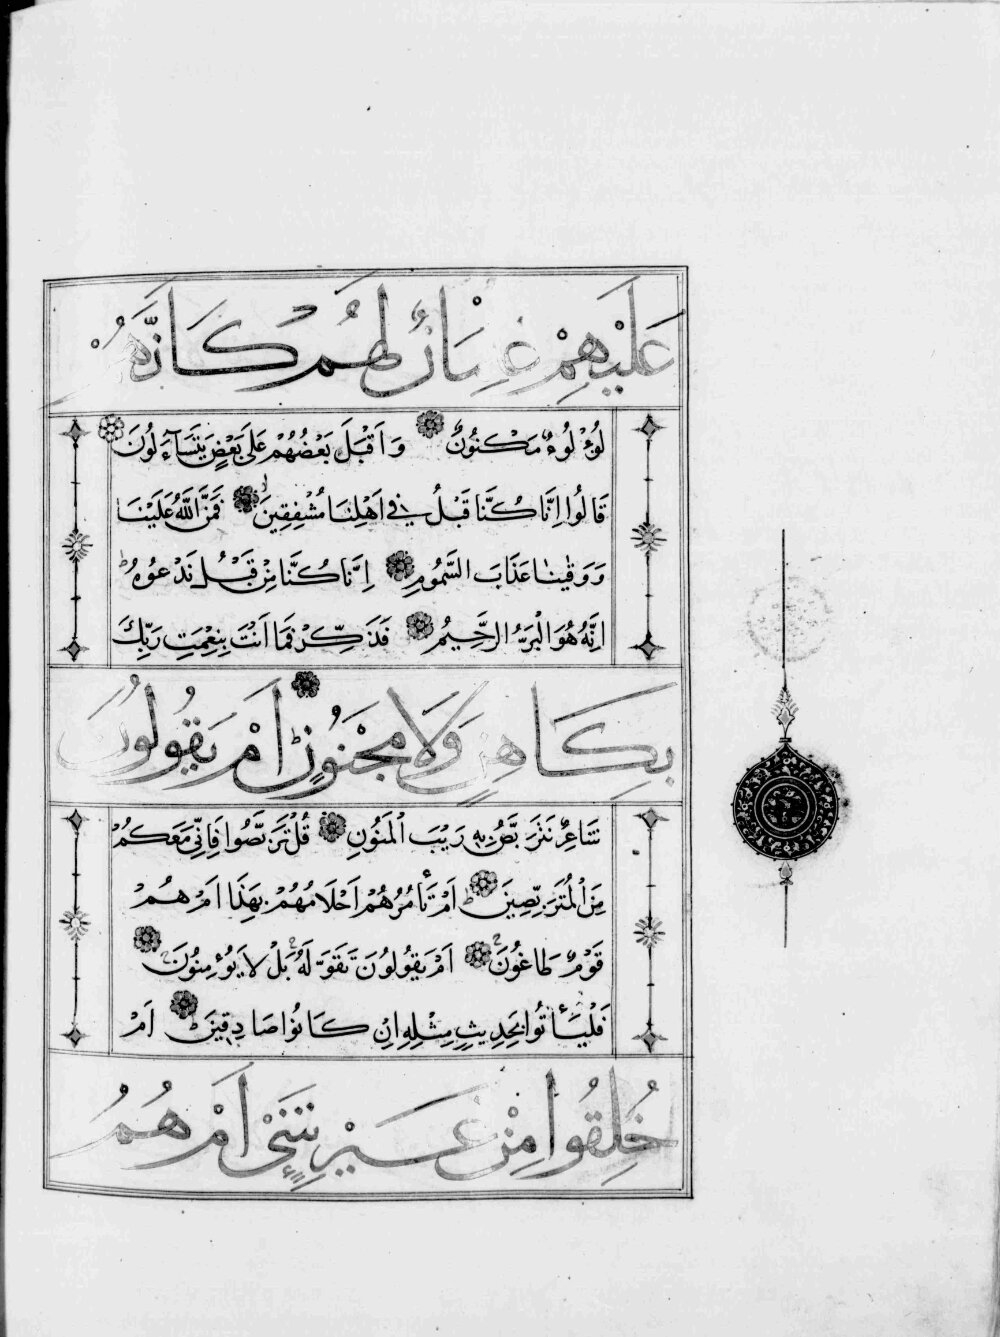 عَلَيْهِمْ غِلْمَانٌ لَهُمْ كَاَنَّهُمْ
لُؤْلُوءٌ مَكْنُونٌ وَاَقْبَلَ بَعْضُهُمْ عَلَى بَعْضٍ يَتَسَآءَلُونَ
قَالُوا اِنَّا كُنَّا قَبْلُ فِي اَهْلِنَا مُشْفِقِينَ فَمَنَّ اللّٰهُ عَلَيْنَا
وَوَقٰينَا عَذَابَ السَّمُومِ اِنَّا كُنَّا مِنْ قَبْلُ نَدْعُوهُ
اِنَّهُ هُوَ الْبَرُّ الرَّحِيمُ فَذَكِّرْ فَمَا اَنْتَ بِنِعْمَتِ رَبِّكَ
بِكَاهِنٍ وَلَا مَجْنُونٍ اَمْ يَقُولُونَ
شَاعِرٌ نَتَرَبَّصُ بِهِ رَيْبَ الْمَنُونِ قُلْ تَرَبَّصُوا فَاِنِّي مَعَكُمْ
مِنَ الْمُتَرَبِّصِينَ اَمْ تَأْمُرُهُمْ اَحْلَامُهُمْ بِهَذَا اَمْ هُمْ
قَوْمٌ طَاغُونَ اَمْ يَقُولُونَ تَقَوَّلَهُ بَلْ لَا يُؤْمِنُونَ
فَلْيَأْتُوا بِحَدِيثٍ مِثْلِهِ اِنْ كَانُوا صَادِقِينَ اَمْ
خُلِقُوا مِنْ غَيْرِ شَيْءٍ اَمْ هُمُ